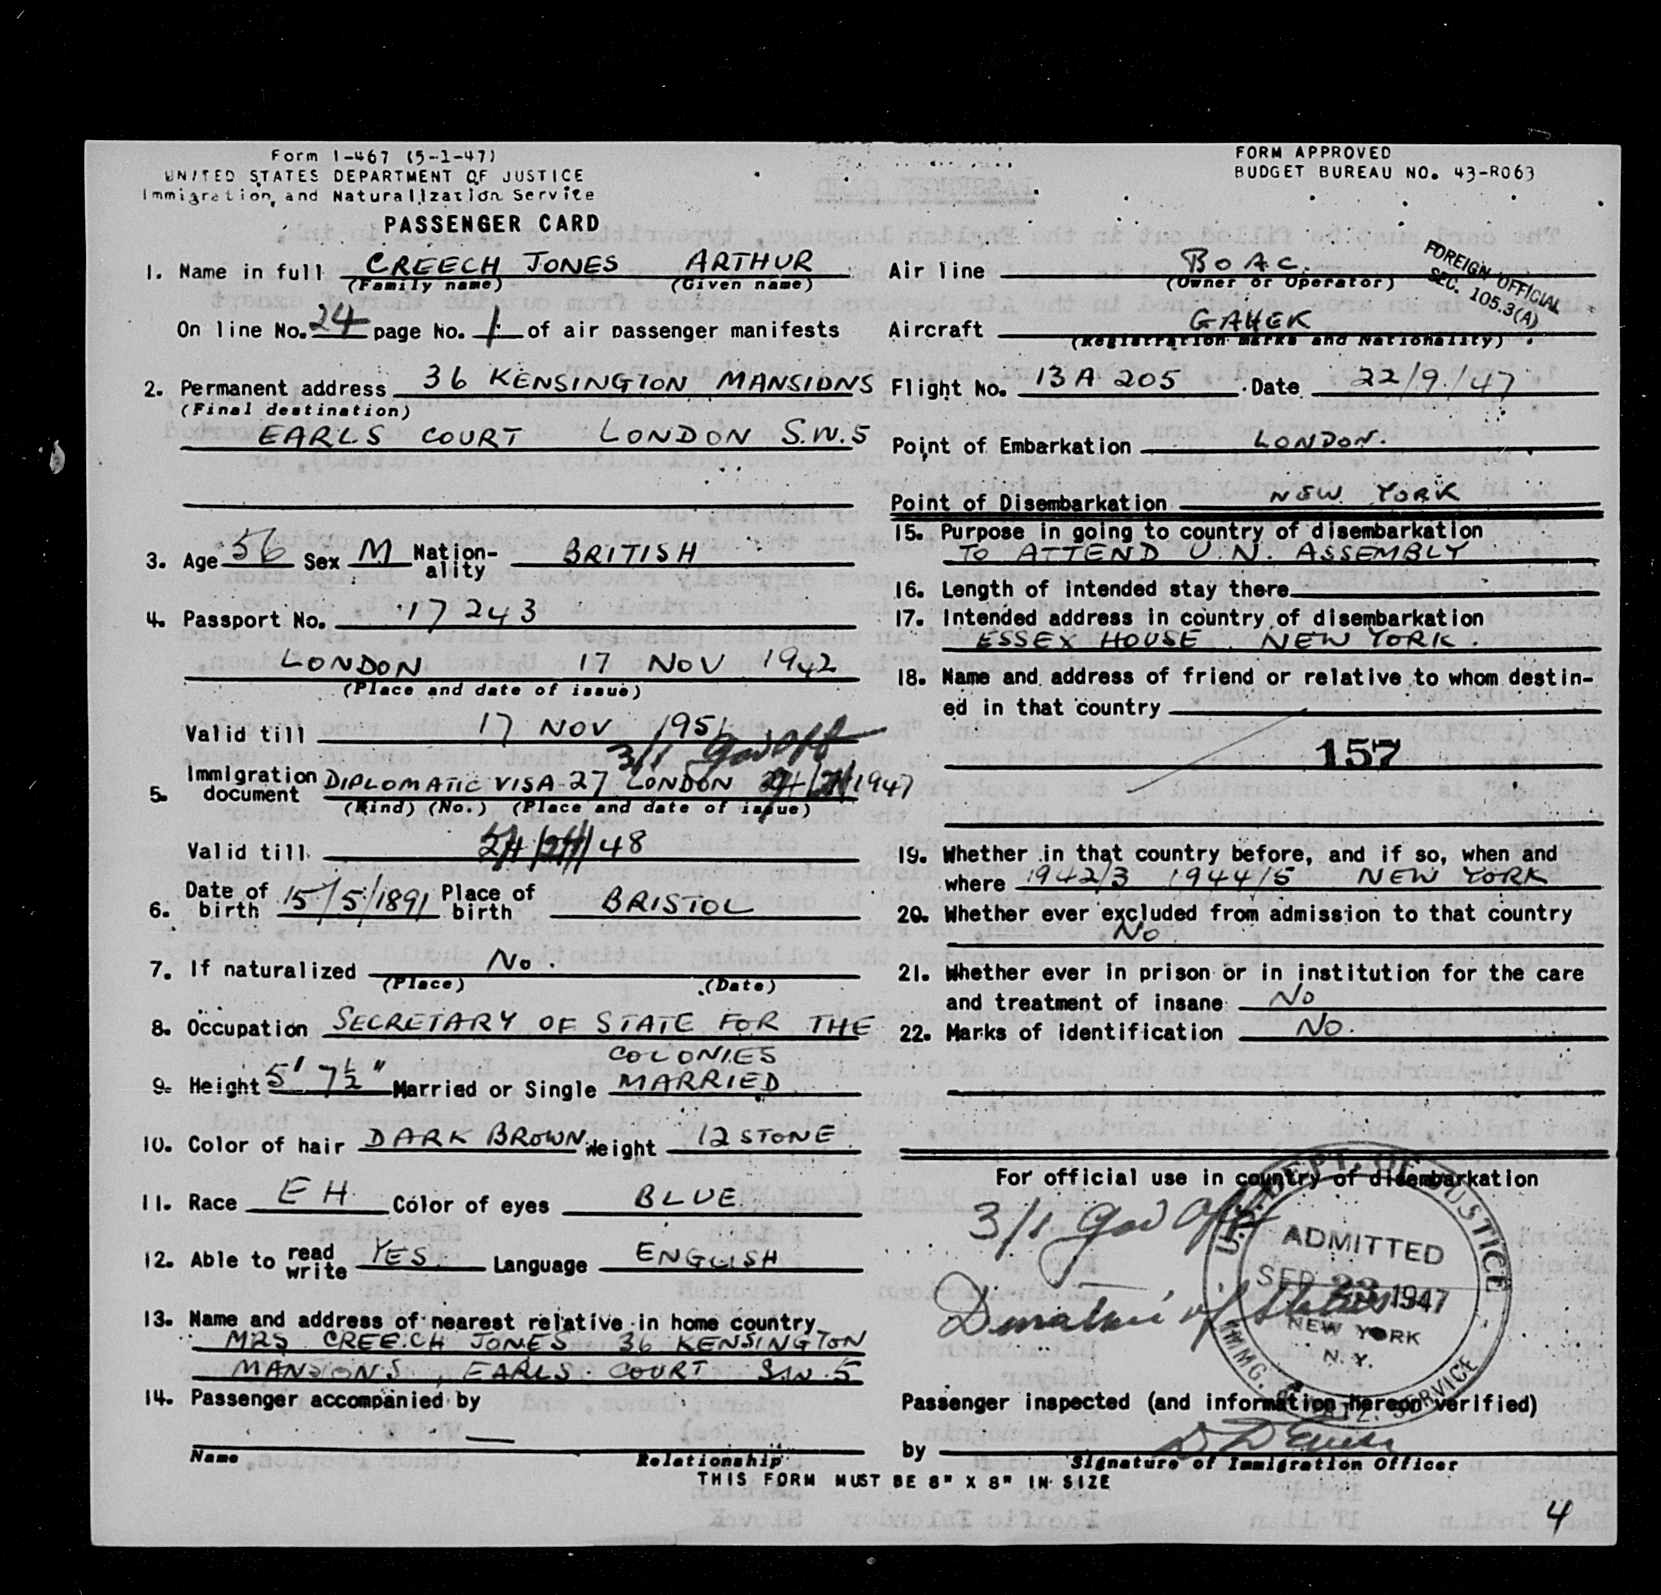 Form I-467 (5-1-47)
UNITED STATES DEPARTMENT OF JUSTICE
Immigration and Naturalization Service
PASSENGER CARD
FORM APPROVED
BUDGET BUREAU NO. 43-R063
FOREIGN OFFICIAL
SEC. 105.3(A)
1. Name in full CREECH JONES ARTHUR
(Family name) (Given name)
On line No. 24 page No. 1 of air passenger manifests
2. Permanent address 36 KENSINGTON MANSIONS
(Final destination)
EARLS COURT LONDON S.W.5
3. Age 56 Sex M Nation-
ality BRITISH
4. Passport No. 17243
LONDON 17 NOV 1942
(Place and date of issue)
Valid till 17 NOV 1951
3/1 Gov Off
5. Immigration
document DIPLOMATIC VISA-27 LONDON 1947
(Kind) (No.) (Place and date of issue)
Valid till 48
6. Date of
birth 15/5/1891 Place of
birth BRISTOL
7. If naturalized No.
(Place) (Date)
8. Occupation SECRETARY OF STATE FOR THE
COLONIES
9. Height 5' 7½" Married or Single MARRIED
10. Color of hair DARK BROWN Weight 12 STONE
11. Race EH Color of eyes BLUE
12. Able to read
write YES Language ENGLISH
13. Name and address of nearest relative in home country
MRS CREECH JONES 36 KENSINGTON
MANSIONS, EARLS COURT S.W.5
14. Passenger accompanied by
—
Name Relationship
Air line BOAC.
(Owner or Operator)
Aircraft GAHEK
(Registration marks and Nationality)
Flight No. 13A 205 Date 22/9/47
Point of Embarkation LONDON.
Point of Disembarkation NEW YORK
15. Purpose in going to country of disembarkation
TO ATTEND U.N. ASSEMBLY
16. Length of intended stay there
17. Intended address in country of disembarkation
ESSEX HOUSE NEW YORK.
18. Name and address of friend or relative to whom destin-
ed in that country
157
19. Whether in that country before, and if so, when and
where 1942/3 1944/5 NEW YORK
20. Whether ever excluded from admission to that country
No
21. Whether ever in prison or in institution for the care
and treatment of insane No
22. Marks of identification No.
For official use in country of disembarkation
3/1 Gov Off
Duration of Status
U.S. DEPT. OF JUSTICE
ADMITTED
SEP 23 1947
NEW YORK
N.Y.
IMMG. & NATZ. SERVICE
Passenger inspected (and information hereon verified)
by
Signature of Immigration Officer
THIS FORM MUST BE 8" X 8" IN SIZE
4